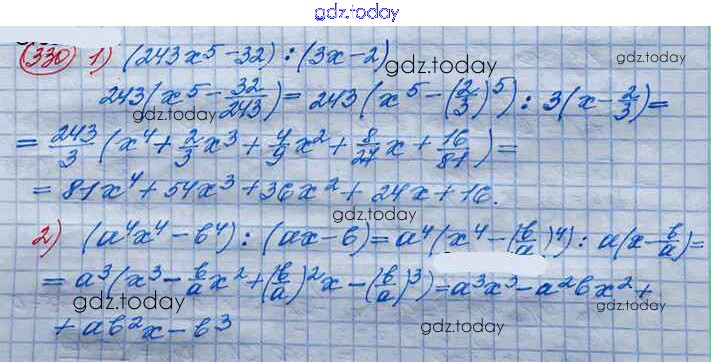 gdz.today
(330) 1) (243x⁵-32):(3x-2) gdz.today
243(x⁵-32/243)=243(x⁵-(2/3)⁵):3(x-2/3)=
=243/3(x⁴+2/3x³+4/9x²+8/27x+16/81)=
=81x⁴+54x³+36x²+24x+16.
gdz.today
2) (a⁴x⁴-b⁴):(ax-b)=a⁴(x⁴-(b/a)⁴):a(x-b/a)=
=a³(x³-b/ax²+(b/a)²x-(b/a)³)=a³x³-a²bx²+
gdz.today
+ab²x-b³ gdz.today
gdz.today